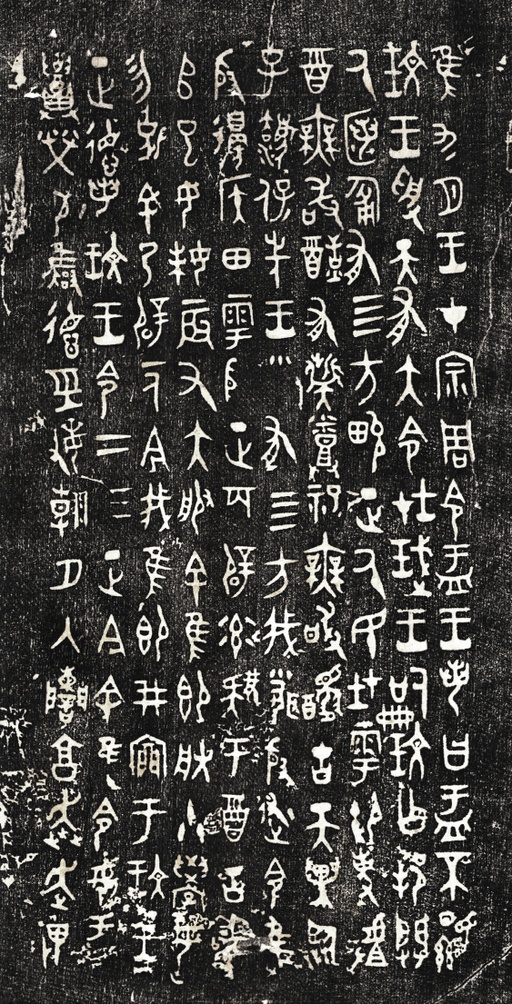 隹九月王才宗周令盂王若曰盂不顯
玟王受天有大令在珷王嗣玟乍邦闢
氒匿匍有四方畯正氒民在雩御事䖒
酉無敢酖有髭烝祀無敢醻古天異臨
子灋保先王有四方我聞殷述令隹
殷邊侯田雩殷正百辟率肄于酉古喪
𠂤巳女妹辰又大服余隹即朕小學女
勿㓷余乃辟一人今我隹即井㐭于玟王
正德若玟王令二三正今余隹令女盂
召榮敬雍德巠敏朝夕入讕享奔走畏